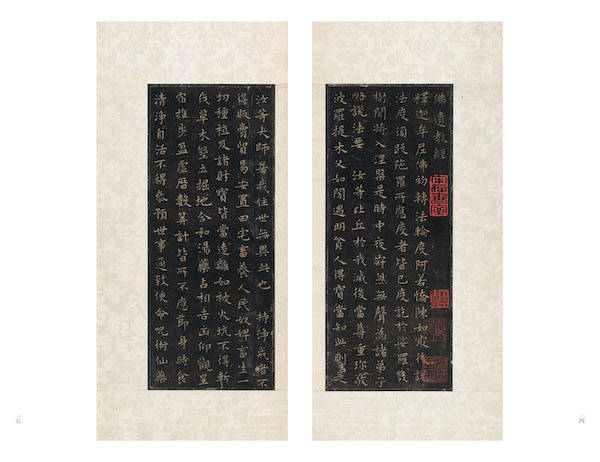 佛遺教經
釋迦牟尼佛初轉法輪度阿若憍陳如寂後說
法度須跋陀羅所應度者皆已度訖於娑羅雙
樹間將入涅槃是時中夜寂然無聲為諸弟子
略說法要 汝等比丘於我滅後當尊重珍敬
波羅提木叉如闇遇明貧人得寶當知此則是
四
汝等大師若我住世無異此也 持淨戒者不
得販賣貿易安置田宅畜養人民奴婢畜生一
切種植及諸財寶皆當遠離如避火坑不得斬
伐草木墾土掘地合和湯藥占相吉凶仰觀星
宿推步盈虛曆數算計皆所不應節身時食
清淨自活不得參預世事通致使命呪術仙藥
五